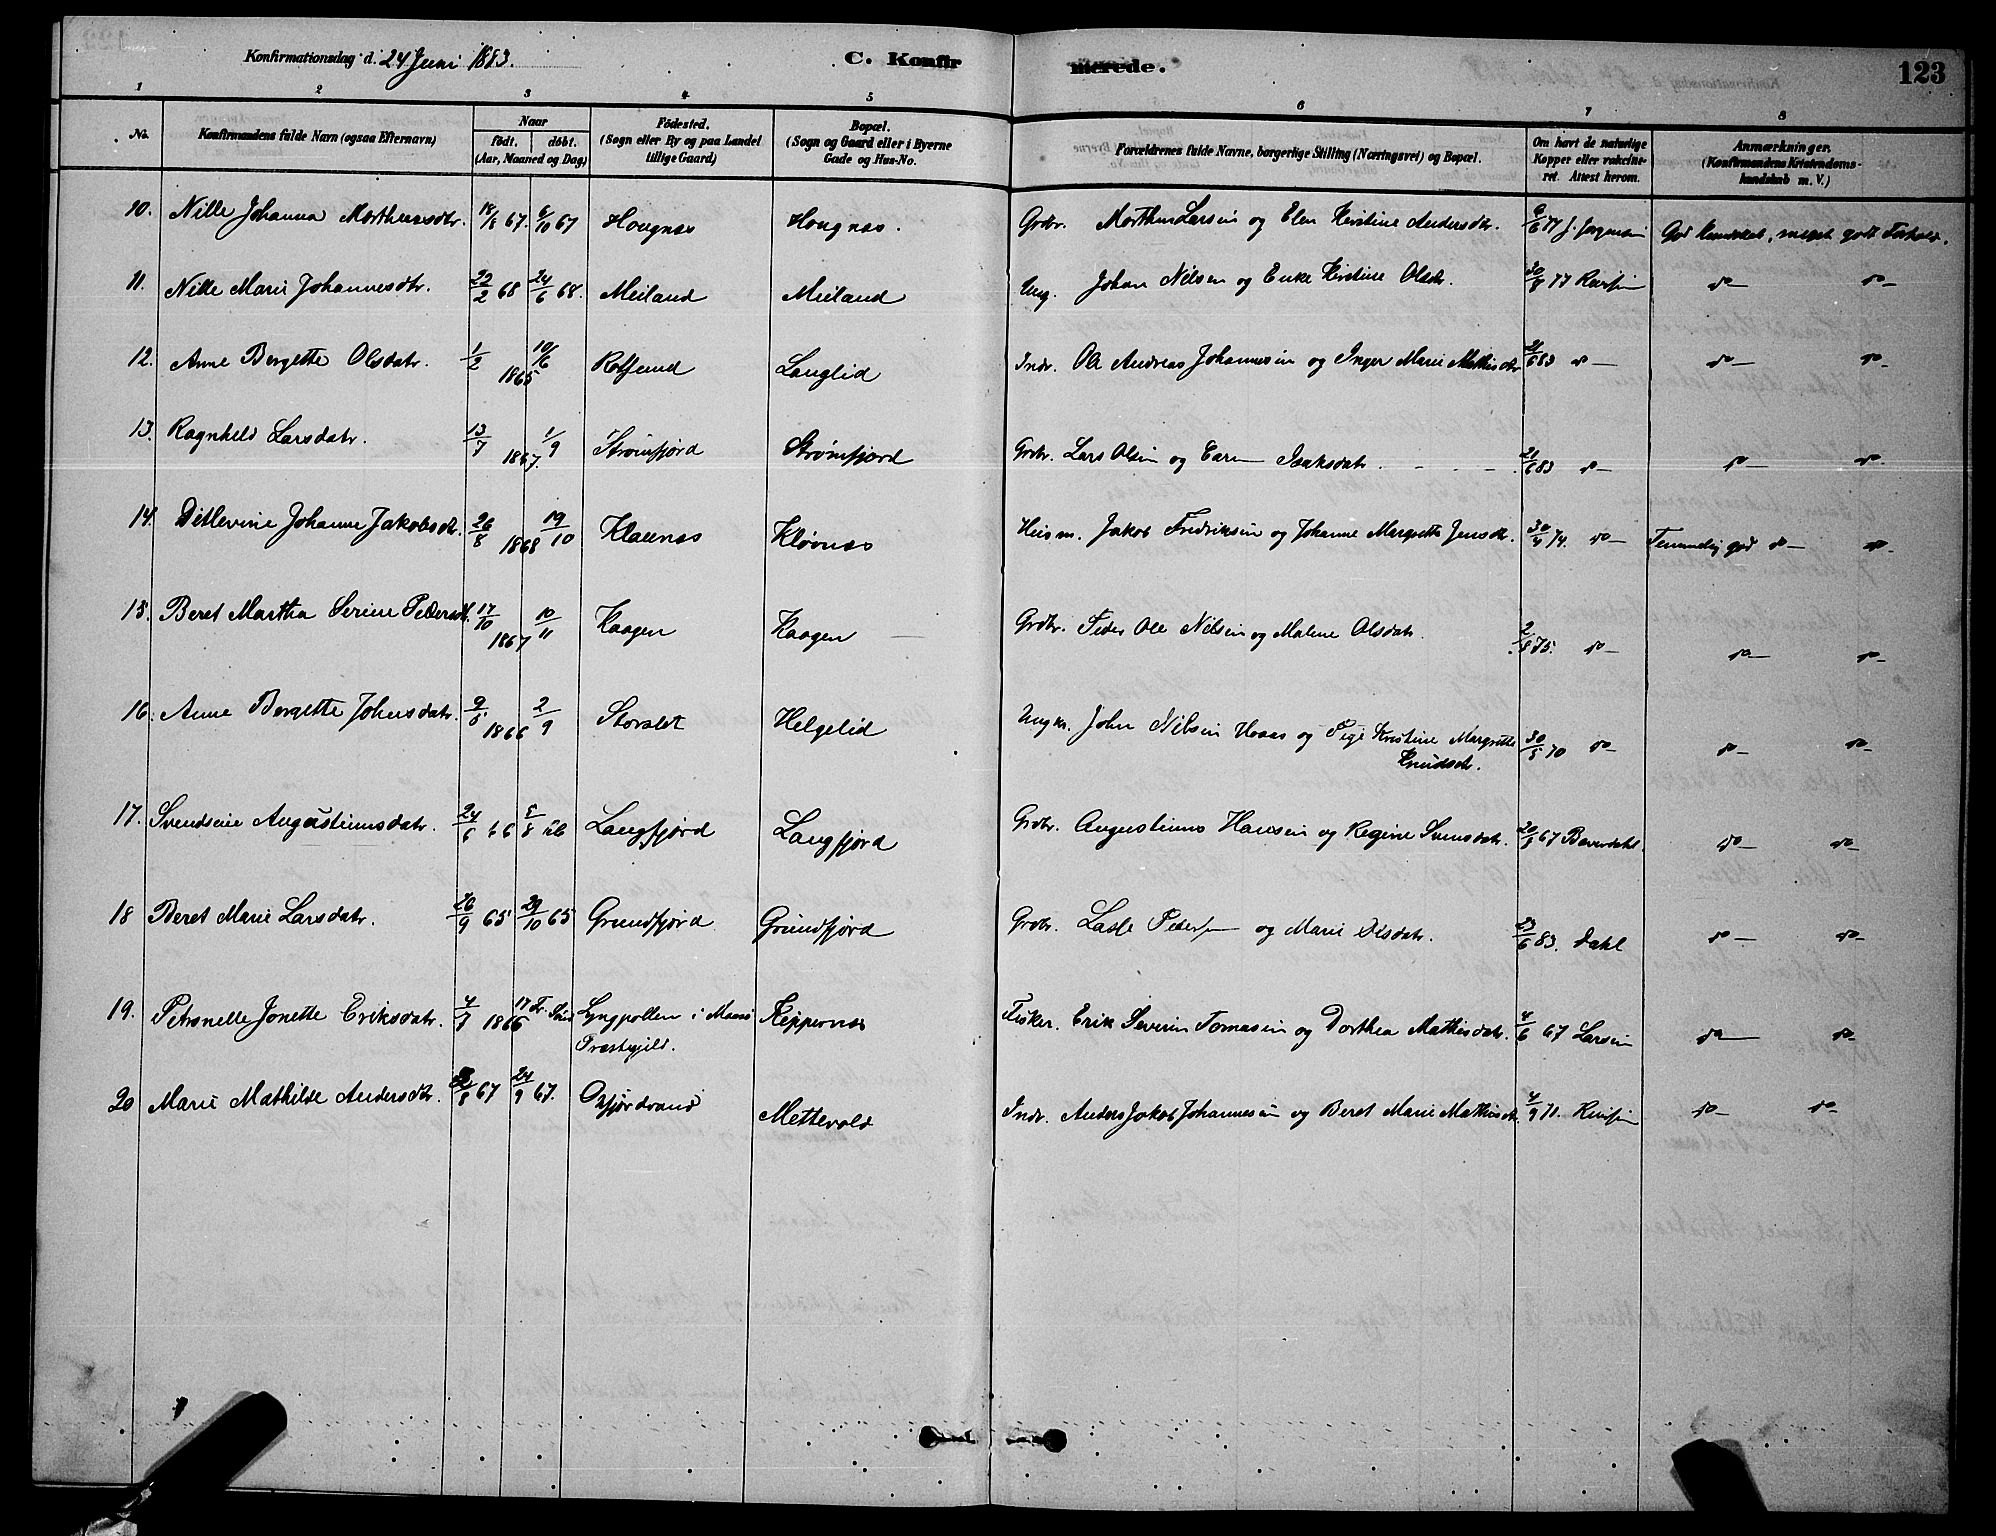 Konfirmationsdag d. 24 Juni 1883. C. Konfirmerede. 123
1 2 3 4 5 6 7 8
No. Konfirmandens fulde Navn (ogsaa Efternavn) Naar født. døbt. (Aar, Maaned og Dag) Fødested. (Sogn eller By og paa Landet tillige Gaard) Bopæl. (Sogn og Gaard eller i Byerne Gade og Hus-No. Forældrenes fulde Navne, borgerlige Stilling (Næringsvei) og Bopæl. Om havt de naturlige Kopper eller vakcineret. Attest herom. Anmærkninger. (Konfirmandens Kristendomskundskab m. V.)
10. Nille Johanna Morthensdtr. 18/8 67. 6/10 67 Hougnæs Hougnæs. Grdbr. Morthen Larsen og Elen Kirstine Andersdtr. J. Jørgensen God Kundskab, meget godt Forhold.
11. Nille Marie Johannesdtr. 22/2 68 24/6 68. Meiland Meiland Ung. Johan Nilsen og Enke Kirstine Olsdtr. 77 do— do—
12. Anne Bergette Olsdatr. 1/2 10/6 1865 Rotsund Langlid Indr. Ole Andreas Johannesen og Inger Marie Mathisdtr 21/6 83 do— do— do—
13. Ragnhild Larsdatr. 13/7 1/9 1867. Strømfjord Strømfjord Grdbr. Lars Olsen og Isaksdatr. 21/6 83 do— do— do—
14. Ditlevine Johanne Jakobsdtr. 26/8 19/10 1868 Kløvnæs Heism. Jakob Fredriksen og Johanne Margrethe Jensdtr. 74. do— Temmelig god do— do—
15. Beret Martha Serine Pedersdtr. 17/10 10/11 1867 Kaagen Kaagen Grdbr. Peder Ole Nilsen og Malene Olsdatr. 2/8 75. do— do— do—
16. Anne Bergette Johnsdatr. 2/9 1866 Storslet Helgelid Ungkr. John Nilsen og Pige Kristine Margrethe Knudsdtr. 70 do— do— do—
17. Augustinusdatr. 66 Langfjord Langfjord Grdbr. Augustinus Hansen og Regine 67 do— do—
18 Beret Marie Larsdatr. 26/9 65 29/10 65 Grundfjord Grundfjord Grdbr. Lasse og Marie 23/6 83. Dahl do— do—
19. Petronelle Jonette Eriksdatr. 4/7 1866 Lyngpollen i Præstegjeld. Keppernæs Fisker. Erik Severin Tomasen og Dorthea Mathisdatr. 4/6 67 Larsen do— do—
20 Marie Mathilde Andersdtr. 67 24/9 67. Oxfjordvand Mettevold Indr. Anders Jakob Johannesen og Beret Marie Mathisdtr. 4/9 71. do— do—